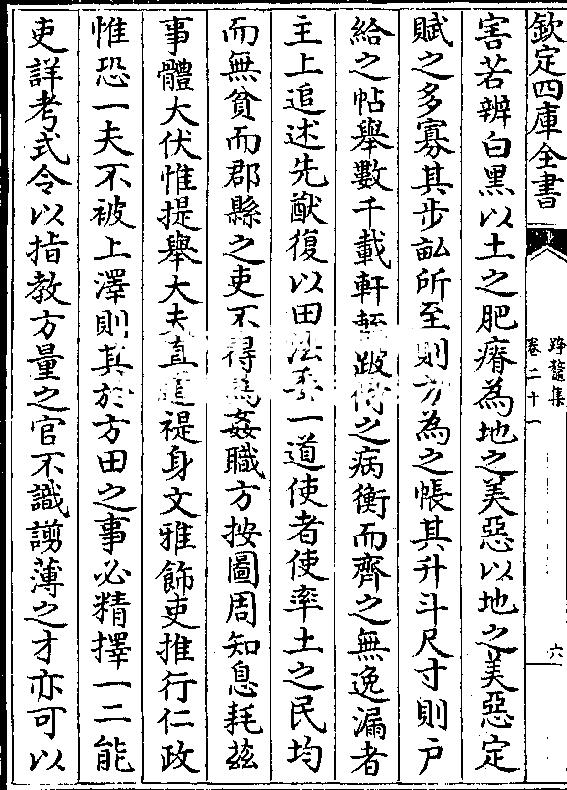 欽定四庫全書
跨鼇集
卷二十一
六
害若辨白黑以土之肥瘠為地之美惡以地之美惡定
賦之多寡其步畆所至則方為之帳其升斗尺寸則戶
給之帖舉數千載軒輊跛倚之病衡而齊之無逸漏者
主上追述先猷復以田法委一道使者使率土之民均
而無貧而郡縣之吏不得為姦職方按圖周知息耗茲
事體大伏惟提舉大夫直道禔身文雅飾吏推行仁政
惟恐一夫不被上澤則其於方田之事必精擇一二能
吏詳考式令以指教方量之官不識謭薄之才亦可以